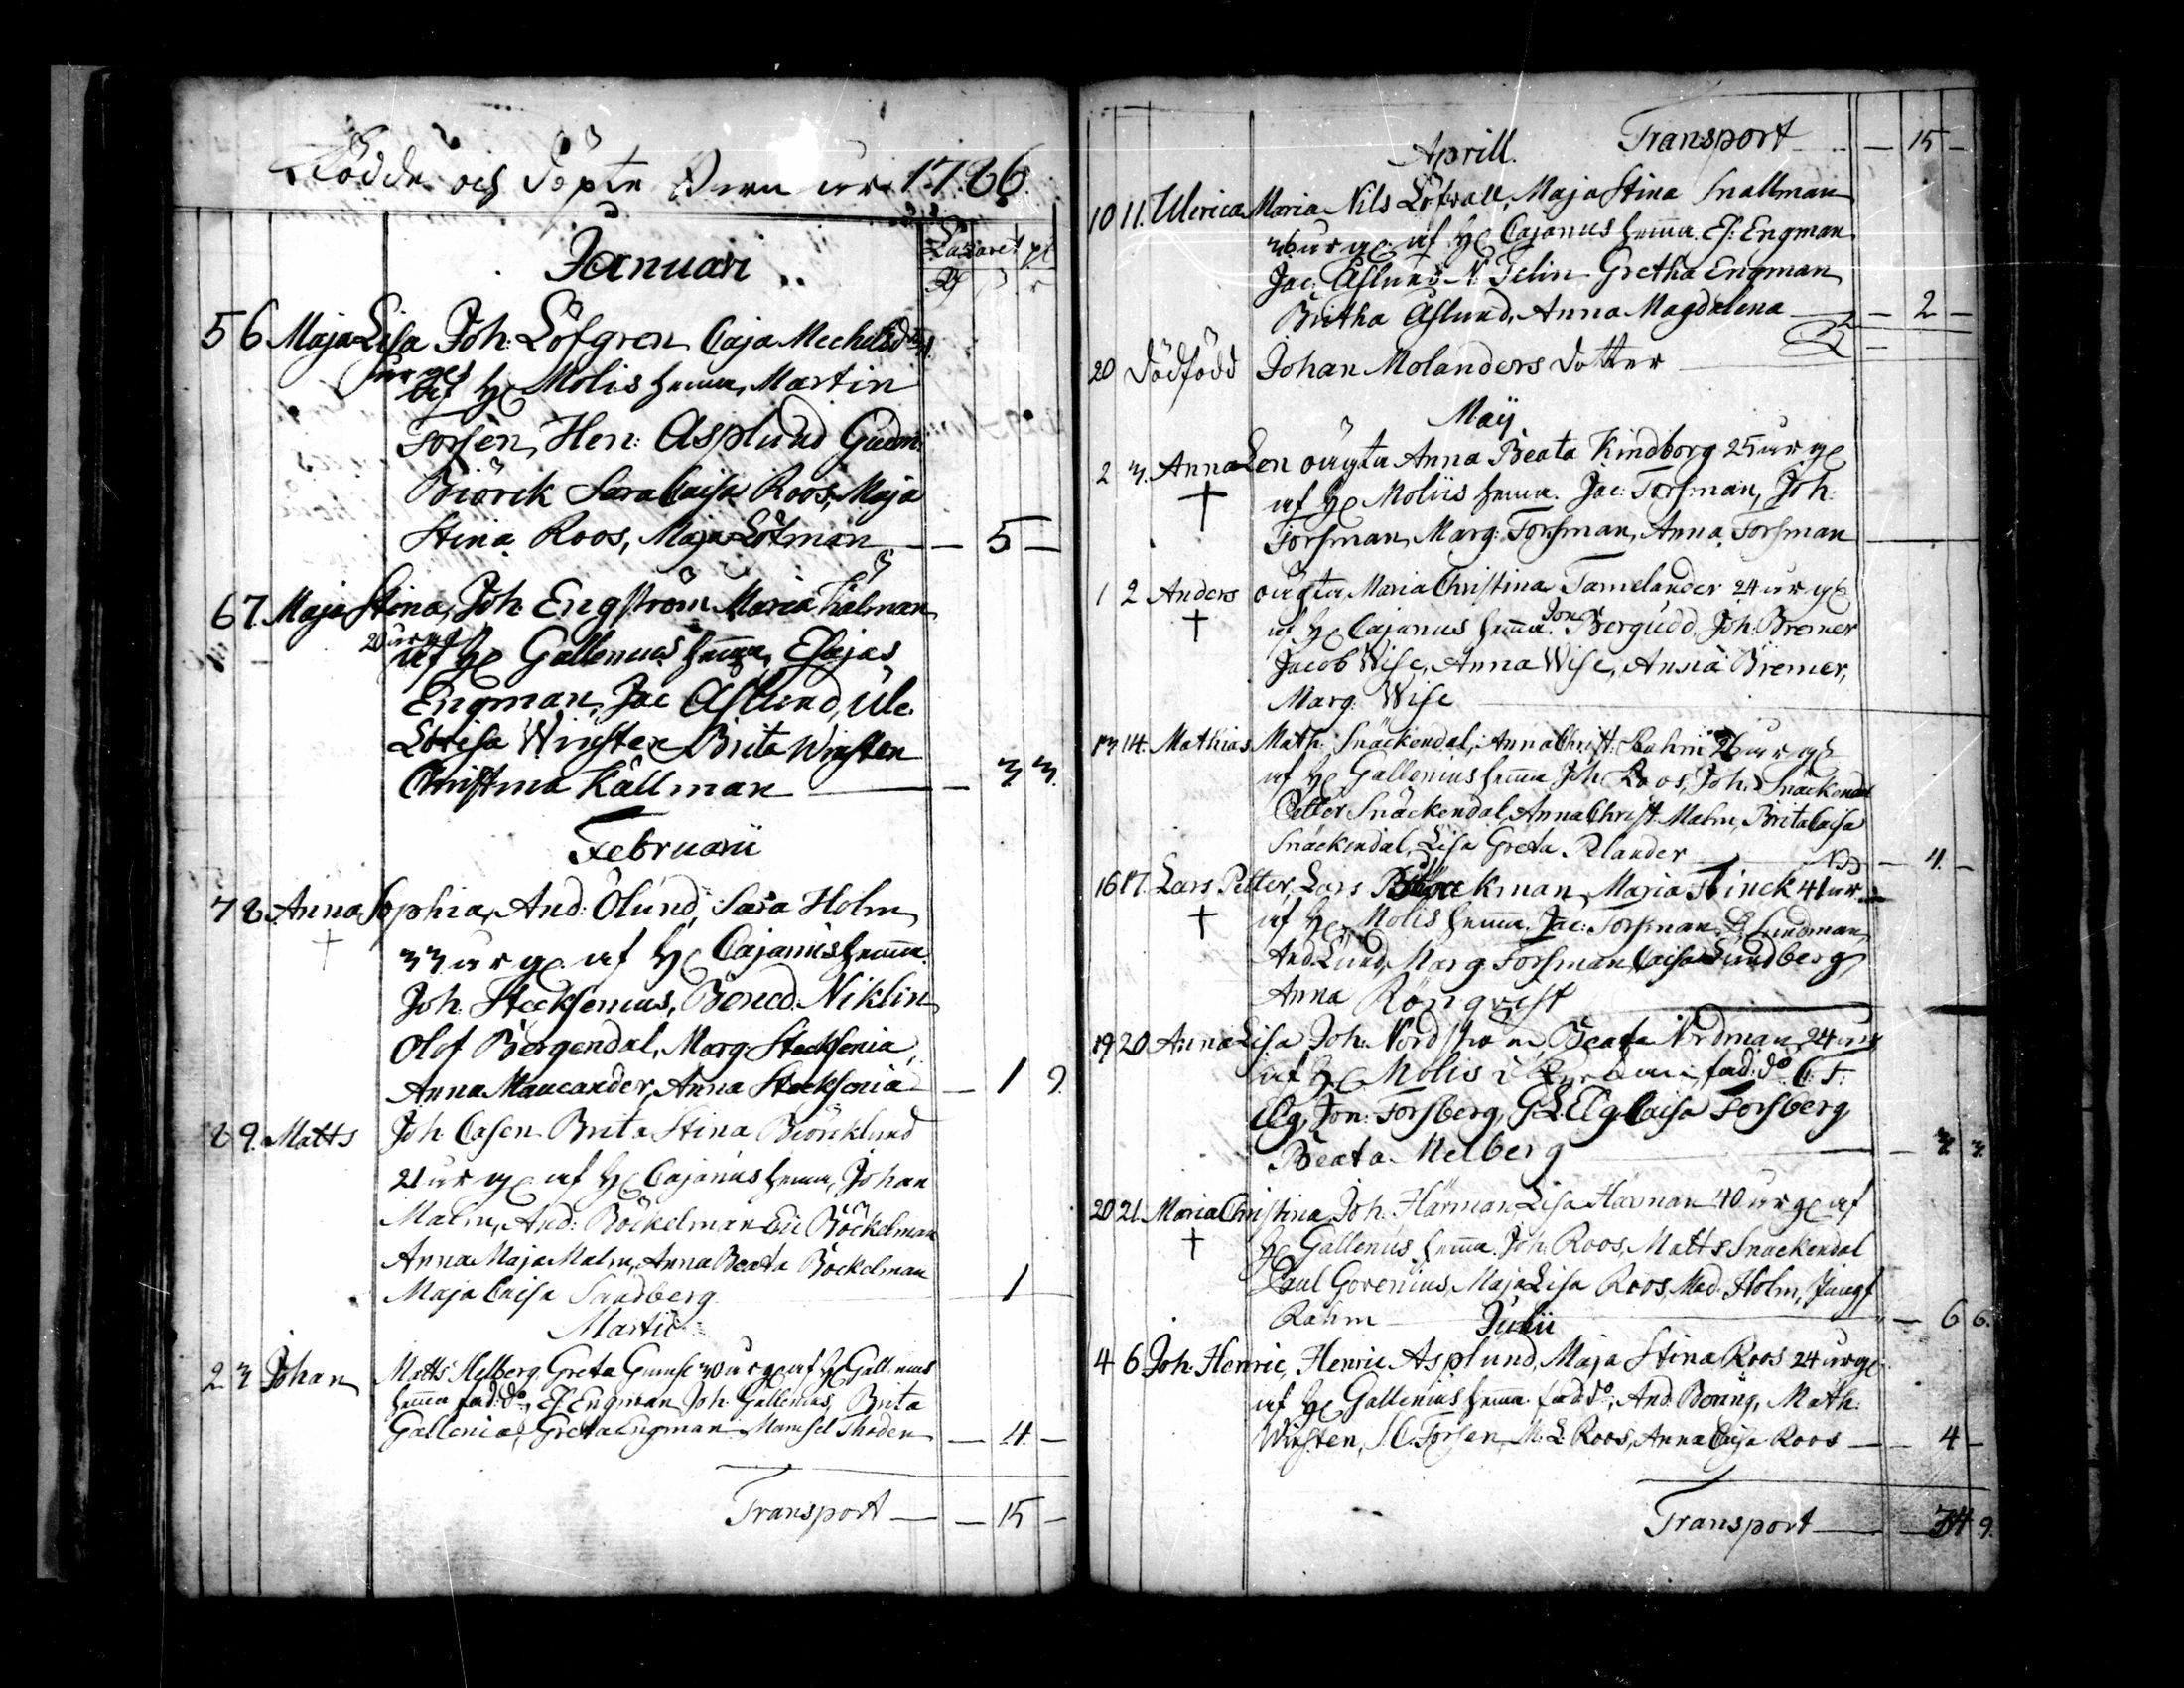 Födde och Döpte Barn åhr 1786.
Januari
Lazaret
5 6 Maja Lisa Joh: Löfgren Caja Mechelsdr
af Hr Molis hemma, Martin
Forsen, Hen: Asplund Gudm:
Biörck Sara Caisa Roos, Maja
Stina Roos, Maja Lötman — 5 —
6 7. Maja Stina, Joh. Engström Maria Kälman
20 år gl
af Hr Gallenius hemma, Esajas
Engman, Jac Åslund, Ule.
Lovisa Winsten Brita Winsten
Christina Källman — 3 3.
Februarii
7 8. Anna Sophia, And: Ölund, Sara Holm
† 33 år gl. af Hr Cajanus hemma.
Joh. Stecksenius, Bened. Niklin
Olof Bergendal, Marg. Stecksenia,
Anna Maucander, Anna Stecksenia — 1 9.
8 9. Matts Joh. Casen Brita Stina Biörcklund
21 år gl af Hr Cajanus hemma, Johan
Malm, And: Böckelman Eric Böckelman
Anna Maja Malm, Anna Beata Böckelman
Maja Caisa Sandberg 1
Martii
2 3 Johan Matts Melberg, Greta Gumse 30 år gl af Hr Gallenius
hemma fad: do, Es. Engman Joh. Gallenius, Brita
Gallenia, Greta Engman Mamsel Thoden — 4. —
Transport — 15 —
Aprill. Transport — 15 —
10 11. Ulrica Maria Nils Löfvall, Maja Stina Snallman
36 år gl. af Hr Cajanus hemma. Es: Engman
Jac: Åslund N. Telin Gretha Engman
Britha Åslund, Anna Magdalena — 2 —
20 Dödfödd Johan Molanders dotter
Maij
2 3. Anna Len oägta Anna Beata Kindborg 25 år gl
† af Hr Moliis hemma. Jac: Forsman, Joh:
Forsman, Marg: Forsman, Anna Forsman
1 2 Anders oägta, Maria Christina Tamelander 24 år gl
† af Hr Cajanus hemma. Jon Bergudd, Joh: Bremer
Jacob Wise, Anna Wise, Anna Bremer,
Marg. Wise
13 14. Mathias Math: Snäckendal, Anna Christ: Rahm 26 år gl
af Hr Gallenius hemma Joh. Roos, Joh. Snäckendal
Petter Snäckendal, Anna Christ. Malm, Brita Caisa
Snäckendal, Lisa Greta Pelander — 4. —
16 17. Lars Petter, Lars Björckman Maria Finck 41 år
† af Hr Molis hemma. Jac: Forsman, Lundman
And. Lund, Marg. Forsman, Caisa Lundberg
Anna Rönqvist
19 20. Anna Lisa Joh. Nordström Beata Nordman, 24 år
af Hr Molis i fad: do C. F.
Elg, Jon: Forsberg, G. L. Elg, Caisa Forsberg
Beata Melberg — 3. 3.
20 21. Maria Christina Joh. Härman Lisa Harman 40 år gl af
† Hr Gallenus hemma. Joh. Roos, Matts Snäckendal
Paul Govenius, Maja Lisa Roos, Mad. Holm, Jungf
Rahm — 6 6.
Julii
4 6 Joh. Henric, Henric Asplund, Maja Stina Roos 24 år gl.
af Hr Gallenius hemma fad do, And. Boning, Math:
Winsten, J. C. Forsen, M. L. Roos, Anna Caisa Roos — 4 —
Transport — 34 9.